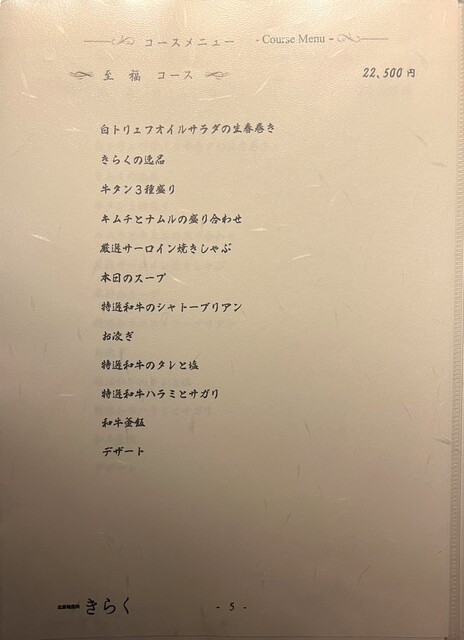 コースメニュー - Course Menu -
至福 コース 22,500円
白トリュフオイルサラダの生春巻き
きらくの逸品
牛タン3種盛り
キムチとナムルの盛り合わせ
厳選サーロイン焼きしゃぶ
本日のスープ
特選和牛のシャトーブリアン
お凌ぎ
特選和牛のタレと塩
特選和牛ハラミとサガリ
和牛釜飯
デザート
きらく
- 5 -